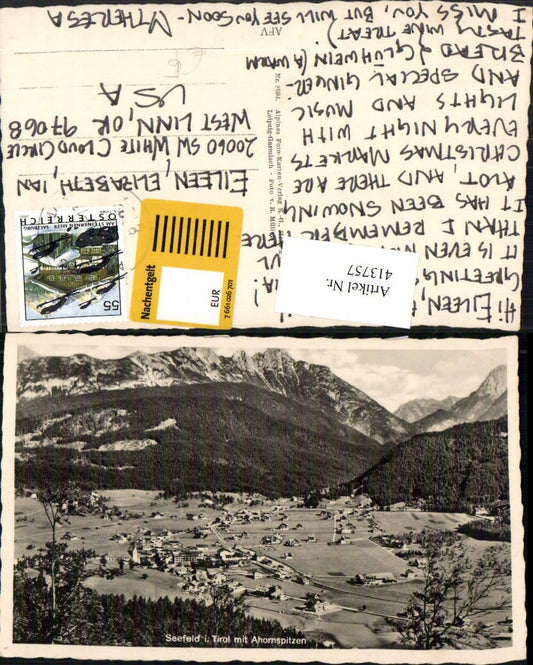 Hi EILEEN,
GREETING
IT IS EVEN
THAN I REMEMBER
IT HAS BEEN SNOWIN
ALOT, AND THERE ARE
CHRISTMAS MARKETS
EVERY NIGHT WITH
LIGHTS AND MUSIC
AND SPECIAL GINGER-
BREAD & GLÜHWEIN (A WARM
TASTY WINE TREAT)
I MISS YOU, BUT WILL SEE YOU SOON -
THERESA
AFV
Nr. 8694. Alpiner Foto-Karten-Verlag
Leipzig-Garmisch - Foto v. R. Müller
EILEEN, ELIZABETH, IAN
20060 SW WHITE CLOUD CIRCLE
WEST LINN, OR 97068
USA
AM STEINERNEN MEER SALZBURG
ÖSTERREICH
55
Nachentgelt
EUR
7 661 026 701
Artikel Nr.
413757
Seefeld i. Tirol mit Ahornspitzen